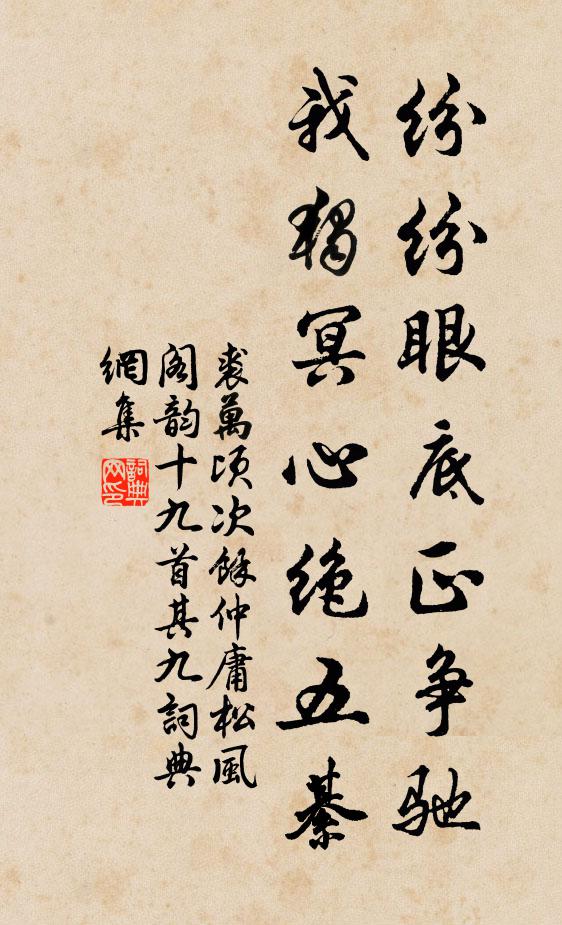 纷纷眼底正争驰
我独冥心绝五綦
裘萬頃次餘仲庸松風
阁韵十九首其九詞典
網集
詞典网印